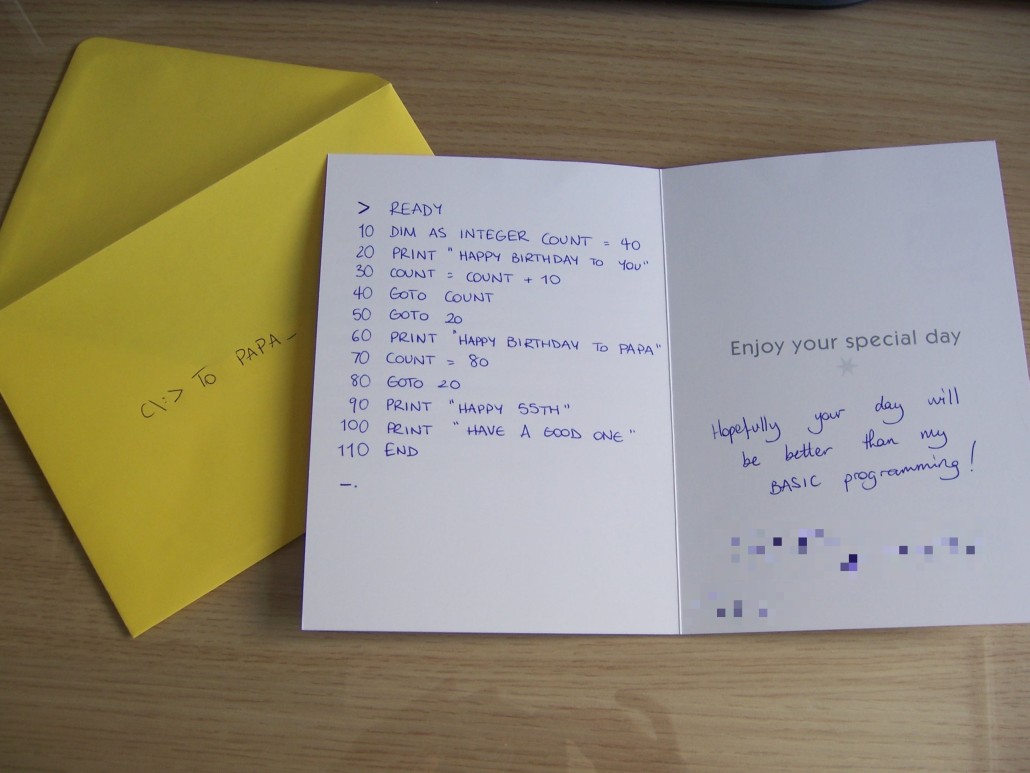 C\:> TO PAPA_
> READY
10 DIM AS INTEGER COUNT = 40
20 PRINT "HAPPY BIRTHDAY TO YOU"
30 COUNT = COUNT + 10
40 GOTO COUNT
50 GOTO 20
60 PRINT "HAPPY BIRTHDAY TO PAPA"
70 COUNT = 80
80 GOTO 20
90 PRINT "HAPPY 55TH"
100 PRINT "HAVE A GOOD ONE"
110 END
_.
Enjoy your special day
Hopefully your day will
be better than my
BASIC programming!